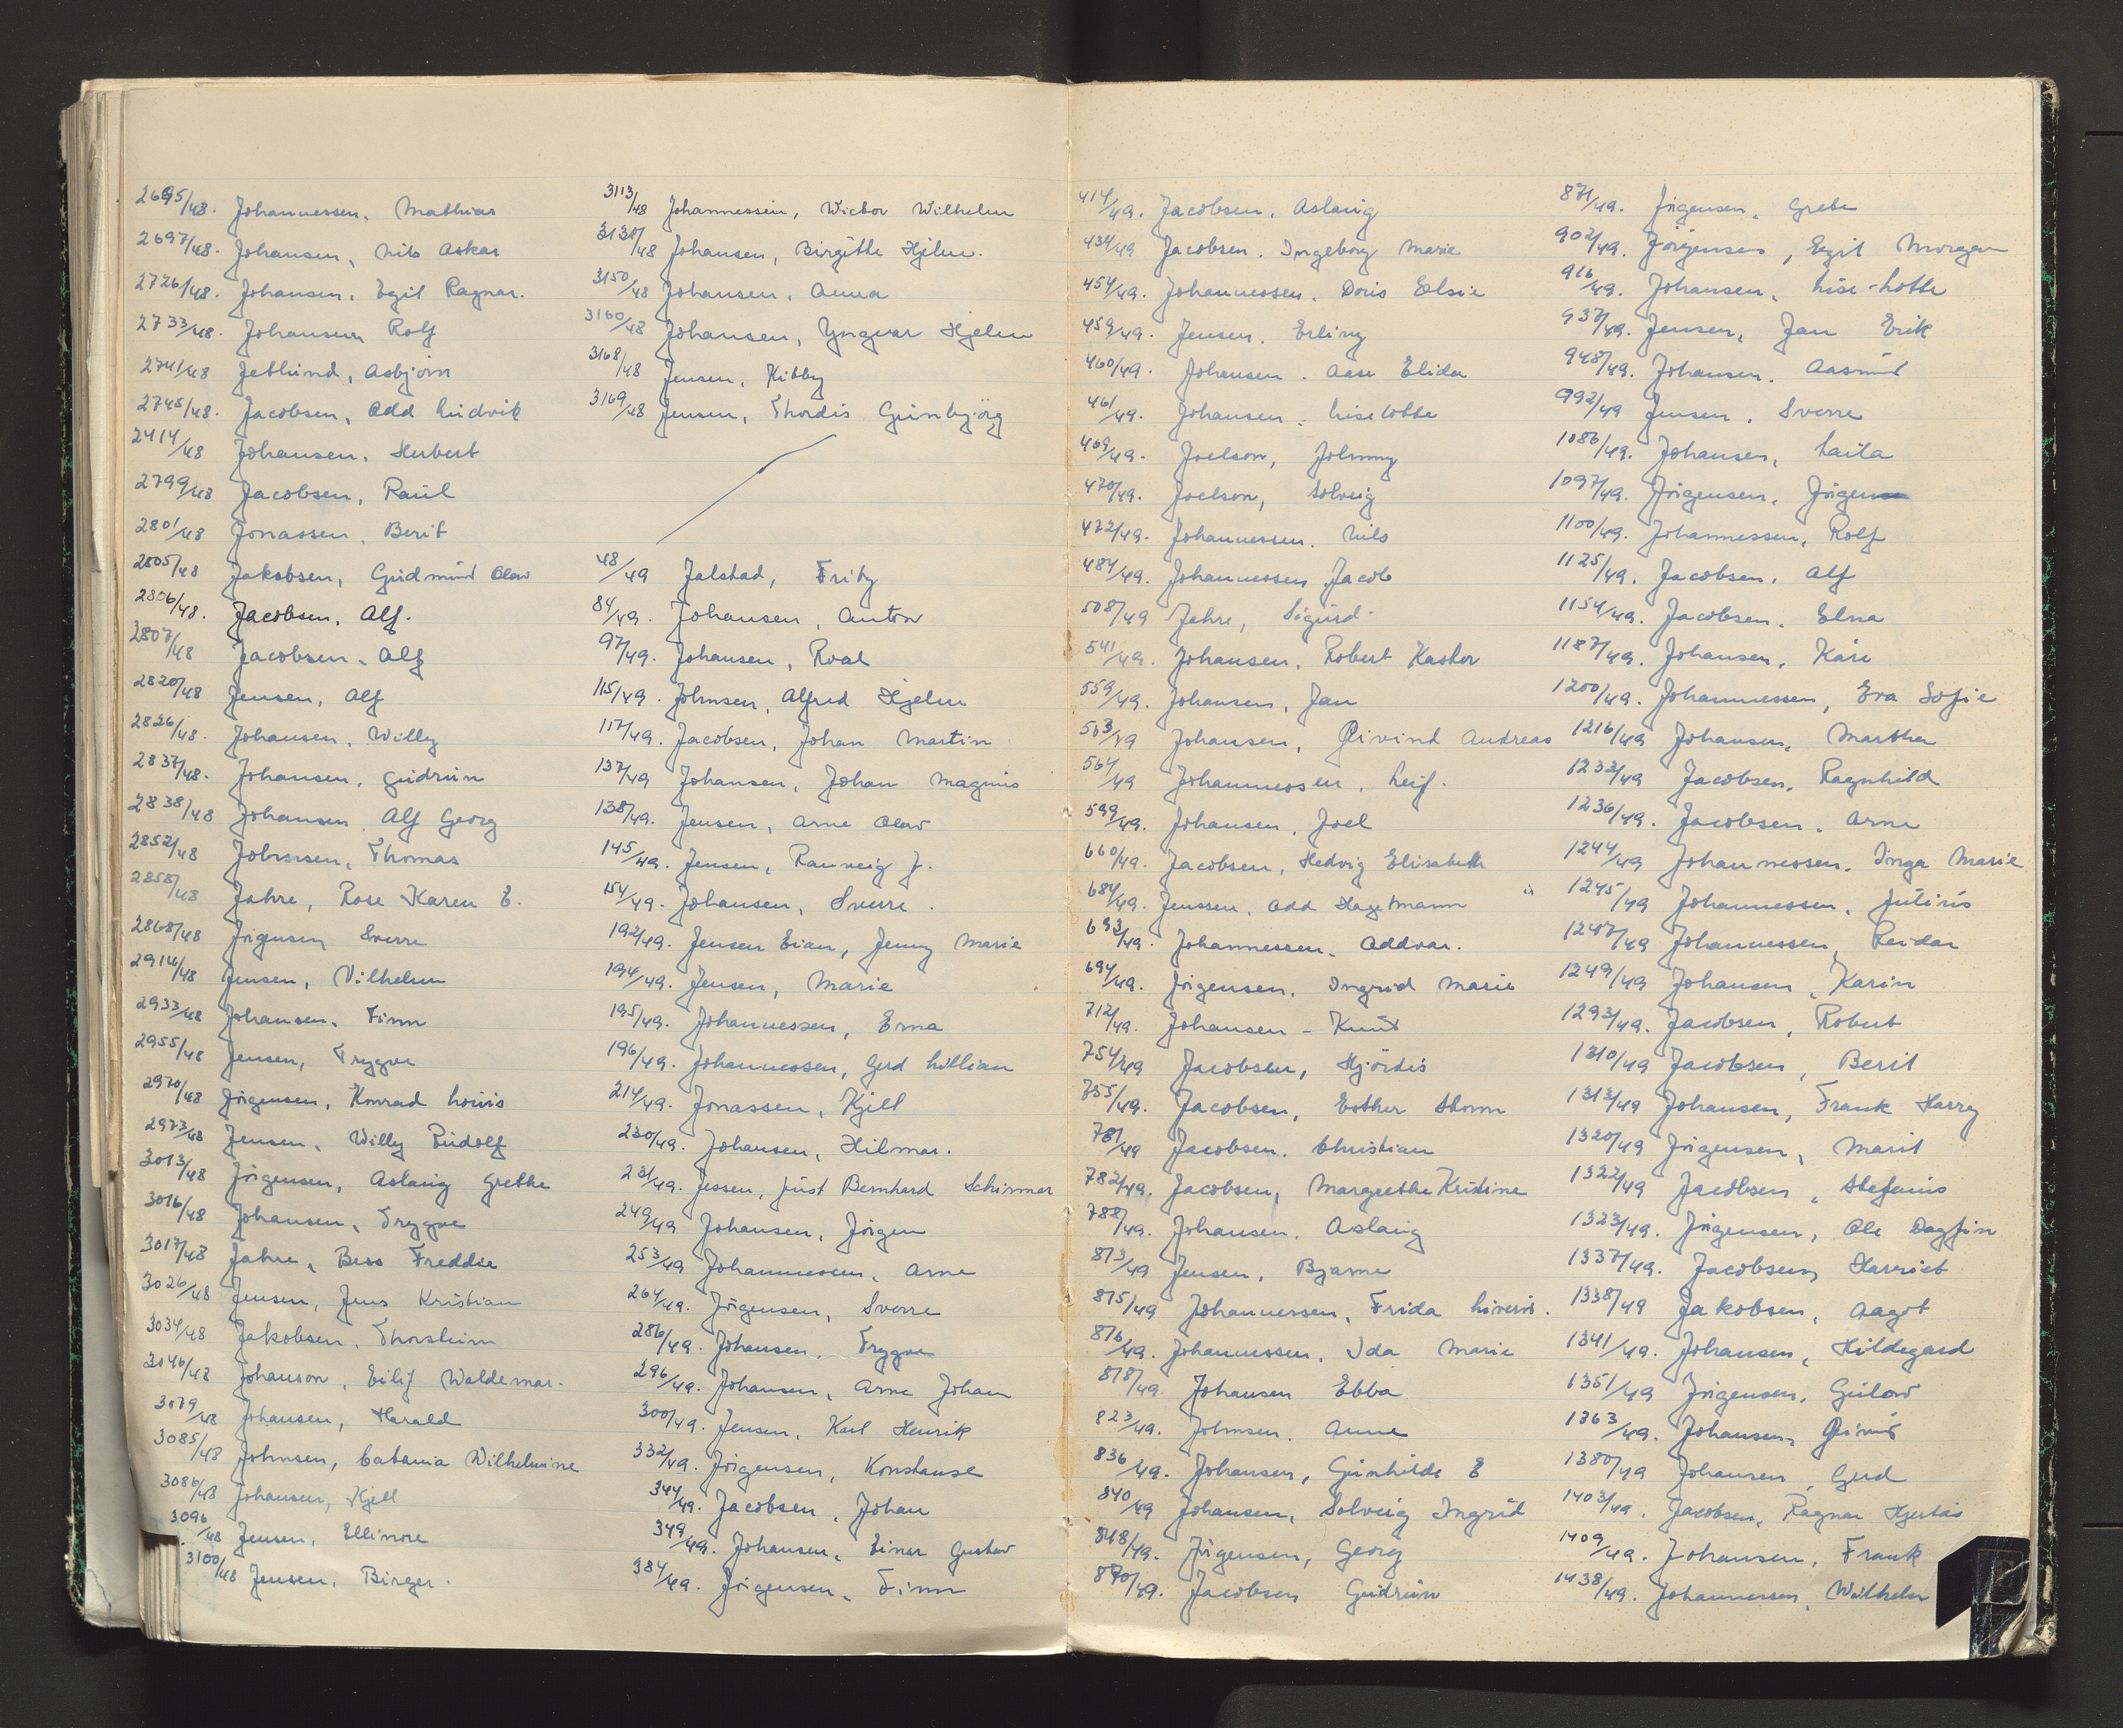 2695/48. Johannessen, Mathias
2697/48. Johansen, Nils Oskar
2726/48. Johansen, Egil Ragnar.
2733/48. Johansen, Rolf
2741/48 Jetlund, Asbjørn
2745/48. Jacobsen, Odd Ludvik
2414/48 Johansen, Herbert
2799/48 Jacobsen, Paul
2801/48 Jonassen, Berit
2805/48 Jakobsen, Gudmund Olav
2806/48. Jacobsen, Alf.
2807/48 Jacobsen, Alf
2820/48 Jensen, Alf
2826/48. Johansen, Willy
2837/48. Johansen, Gudrun
2838/48 Johansen, Alf Georg
2852/48 Johnsen, Thomas
2858/48 Jahre, Rose Karen E.
2868/48 Jörgensen, Sverre
2914/48 Jensen, Vilhelm
2933/48 Johansen, Finn
2955/48 Jensen, Trygve
2970/48 Jörgensen, Konrad Louis
2973/48 Jensen, Willy Rudolf
3013/48 Jörgensen, Aslaug Grethe
3016/48 Johansen, Trygve
3017/48 Jahre, Bess Freddie
3026/48 Jensen, Jens Kristian
3034/48 Jakobsen, Thorleiv
3046/48 Johanson, Eilif Waldemar.
3079/48 Johansen, Harald
3085/48 Johnsen, Catania Wilhelmine
3086/48 Johansen, Kjell
3096/48 Jensen, Ellinore
3100/48 Jensen, Birger.
3113/48 Johannessen, Wictor Wilhelm
3138/48 Johansen, Birgitte Hjelm.
3150/48 Johansen, Anna
3160/48 Johansen, Yngvar Hjelm
3168/48 Jensen, Kitty
3169/48 Jensen, Thordis Gunbjörg
48/49 Jalstad, Fritz
84/49. Johansen, Anton
97/49. Johansen, Roal
115/49. Johnsen, Alfred Hjelm
117/49. Jacobsen, Johan Martin
137/49 Johansen, Johan Magnus
138/49. Jensen, Arne Olav
145/49. Jensen, Ranveig J.
154/49. Johansen, Sverre.
192/49. Jensen Eian, Jenny Marie
194/49. Jensen, Marie
195/49. Johannessen, Erna
196/49. Johannessen, Gerd Lillian
214/49. Jonassen, Kjell
230/49. Johansen, Hilmar.
231/49. Jessen, Just Bernhard Schirmer
249/49 Johansen, Jörgen
253/49 Johannessen, Arne
264/49. Jörgensen, Sverre
286/49. Johansen, Trygve
296/49. Johansen, Arne Johan
300/49. Jensen, Karl Henrik
332/49. Jörgensen, Konstanse
344/49. Jacobsen, Johan
349/49. Johansen, Einar Gustav
384/49. Jörgensen, Finn
414/49. Jacobsen, Aslaug
434/49 Jacobsen, Ingeborg Marie
454/49. Johannessen, Doris Elsie
459/49. Jensen, Erling
460/49. Johansen, Aase Elida
461/49. Johansen, Liselotte
469/49. Joelson, Johnny
470/49. Joelson, Solveig
472/49. Johannessen, Nils
484/49. Johannessen, Jacob
508/49 Jahre, Sigurd
541/49. Johansen, Robert Kastor
559/49. Johansen, Jan
563/49 Johansen, Øivind Andreas
564/49 Johannessen, Leif.
599/49. Johansen, Joel
660/49. Jacobsen, Hedvig Elisabeth
684/49. Jenssen, Odd Hagelmann
693/49. Johannessen, Oddvar.
694/49. Jörgensen, Ingrid Marie
712/49. Johansen - Knut
754/49 Jacobsen, Hjördis
755/49. Jacobsen, Esther Storm
781/49 Jacobsen, Christian
782/49. Jacobsen, Margrethe Kristine
788/49. Johansen, Aslaug
813/49 Jensen, Bjarne
815/49 Johannessen, Frida
816/49. Johannessen, Ida Marie
818/49. Johansen Ebba
823/49. Johnsen, Anne
836/49. Johansen, Gunhilde E
840/49 Johansen, Solveig Ingrid
848/49. Jörgensen, Georg
870/49. Jacobsen Gudrun
871/49. Jörgensen, Grete
902/49. Jörgensen, Egil Morgan
916/49. Johansen, Lise-Lotte
937/49. Jensen, Jan Erik
948/49. Johansen, Aasmund
992/49 Jensen, Sverre
1086/49. Johansen, Laila
1097/49. Jörgensen, Jörgen
1100/49. Johannessen, Rolf
1125/49. Jacobsen, Alf
1154/49. Jacobsen, Elna
1187/49. Johansen, Kåre
1200/49. Johannessen, Eva Sofie
1216/49 Johansen, Marthea
1233/49 Jacobsen, Ragnhild
1236/49. Jacobsen, Arne
1244/49 Johannessen, Inga Marie
1245/49 Johannessen, Julius
1247/49 Johannessen, Reidar
1249/49 Johansen, Karin
1293/49. Jacobsen, Robert
1310/49 Jacobsen, Berit
1313/49 Johansen, Frank Harry
1320/49 Jörgensen, Marit
1322/49 Jacobsen, Stefanus
1323/49. Jörgensen, Ole Dagfin
1337/49. Jacobsen, Harriet
1338/49 Jakobsen, Aagot
1341/49. Johansen, Hildegard
1351/49 Jörgensen, Gulow
1363/49. Johansen,
1380/49 Johansen, Gerd
1403/49. Jacobsen, Ragnar Hjertås
1409/49. Johansen, Frank
1438/49. Johannessen, Wilhelm